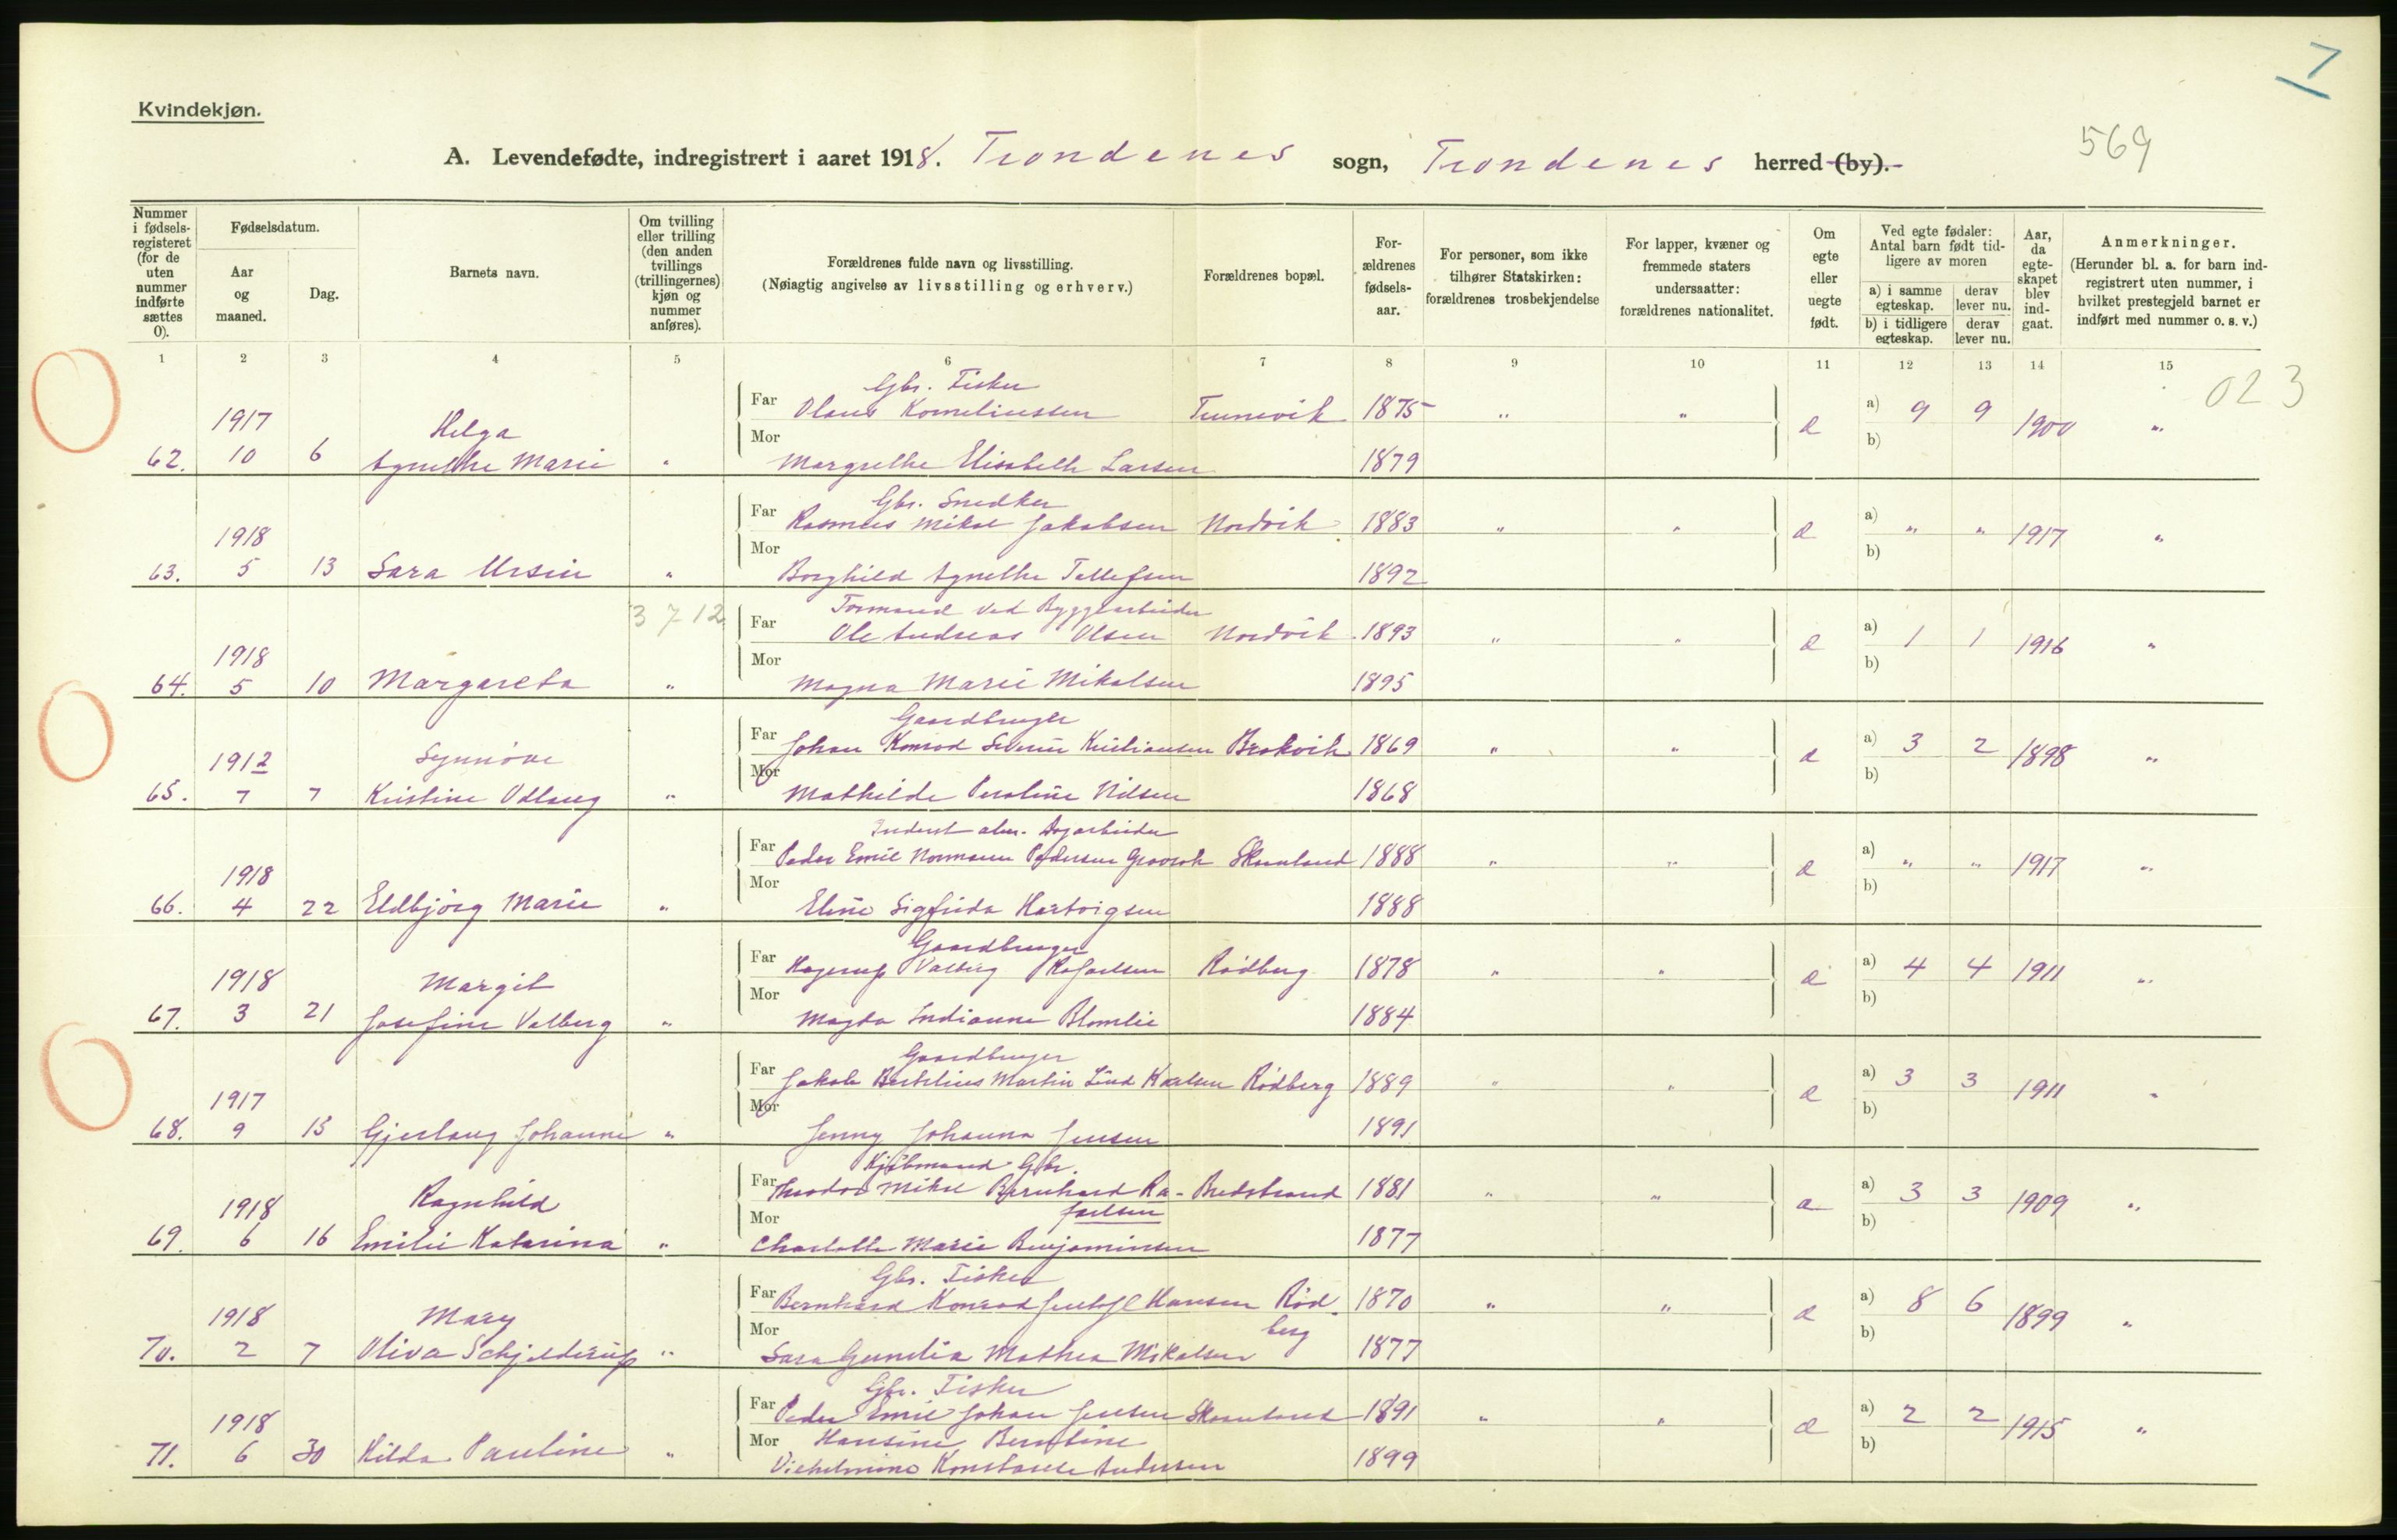 7
Kvindekjøn.
569
A. Levendefødte, indregistrert i aaret 1918. Trondenes sogn, Trondenes herred (by).
Nummer i fødsels-registeret (for de uten nummer indførte sættes 0).
Fødselsdatum.
Aar og maaned.
Dag.
Barnets navn.
Om tvilling eller trilling (den anden tvillings (trillingernes) kjøn og nummer anføres).
Forældrenes fulde navn og livsstilling.
(Nøiagtig angivelse av livsstilling og erhverv.)
Forældrenes bopæl.
For-ældrenes fødsels-aar.
For personer, som ikke tilhører Statskirken: forældrenes trosbekjendelse
For lapper, kvæner og fremmede staters undersaatter: forældrenes nationalitet.
Om egte eller uegte født.
Ved egte fødsler: Antal barn født tid-ligere av moren
a) i samme egteskap. derav lever nu.
b) i tidligere egteskap. derav lever nu.
Aar, da egte-skapet blev ind-gaat.
Anmerkninger.
(Herunder bl. a. for barn ind-registrert uten nummer, i hvilket prestegjeld barnet er indført med nummer o. s. v.)
1 2 3 4 5 6 7 8 9 10 11 12 13 14 15
023
Gbr. Fisker
Far Olaus Korneliussen 1875 " "
1917 Helga a) 9 9 1900 "
62. 10 6 Agnethe Marie " Mor Margrethe Elisabeth Larsen 1879 b)
Gbr. Snedker
Far Rasmus Mikal Jakobsen Nordvik 1883 " "
1918 a) " " 1917 "
63. 5 13 Sara Ursin " Mor Borghild Agnethe Tellefsen 1892 b)
3 7 12
Formand ved Byggearbeider
Far Ole Andreas Olsen Nordvik 1893 " "
1918 a) 1 1 1916 "
64. 5 10 Margareta " Mor Magna Marie Mikalsen 1895 b)
Gaardbruger
Far Johan Konrad Severin Kristiansen Brokvik 1869 " "
1912 Synnöve a) 3 2 1898 "
65. 7 7 Kristine Odlaug " Mor Mathilde Petroline Nilsen 1868 b)
Inderst alm. Dagarbeider
Far Peder Emil Normann Pedersen Skaanland 1888 " "
1918 a) " " 1917 "
66. 4 22 Eldbjörg Marie " Mor Eline Sigfrida Hartvigsen 1888 b)
Gaardbruger
Far Hagerup Valberg Rafaelsen Rödberg 1878 " "
1918 Margit a) 4 4 1911 "
67. 3 21 Josefine Valberg " Mor Magda Indianne Blomlie 1884 b)
Gaardbruger
Far Jakob Bertelius Martin Lind Karlsen Rödberg 1889 " "
1917 a) 3 3 1911 "
68. 9 15 Gjerlaug Johanne " Mor Jenny Johanna Jensen 1891 b)
Kjöbmand Gbr.
Far Theodor Mikal Bernhard Ra- Bredstrand 1881 " "
faelsen
1918 Ragnhild a) 3 3 1909 "
69. 6 16 Emilie Katarina " Mor Charlotte Marie Benjaminsen 1877 b)
Gbr. Fisker
Far Bernhard Konrad Jentoft Hansen Röd- 1870 " "
berg
1918 Mary a) 8 6 1899 "
70. 2 7 Oliva Schjelderup " Mor Sara Mathea Mikalsen 1877 b)
Gbr. Fisker
Far Peder Emil Johan Jensen Skaanland 1891 " "
1918 a) 2 2 1915 "
71. 6 30 Hilda Pauline " Mor Hansine Berntine
Vilhelmine Konstanse Andersen 1899 b)